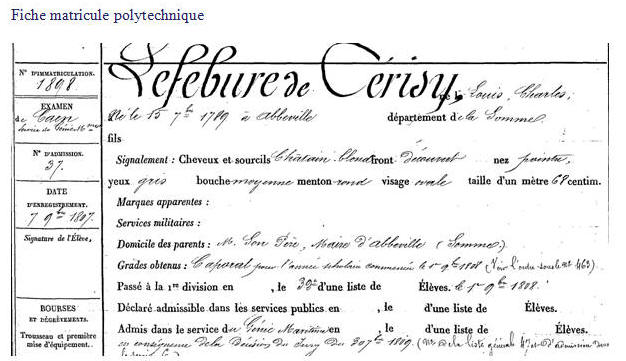 Fiche matricule polytechnique
N° D'IMMATRICULATION.
1898
EXAMEN
de Caen
N° D'ADMISSION.
37.
DATE
D'ENREGISTREMENT.
7 9bre 1807.
Signature de l'Élève,
BOURSES
ET DÉGRÈVEMENTS.
Trousseau et première
mise d'équipement.
Lefebure de Cérisy, Louis, Charles,
Né le 15 7bre 1789 à Abbeville département de la Somme
fils
Signalement : Cheveux et sourcils Chatain-blond front Découvert nez pointu,
yeux gris bouche moyenne menton rond visage ovale taille d'un mètre 68 centim.
Marques apparentes :
Services militaires :
Domicile des parents : M. Son Père, Maire d'Abbeville (Somme)
Grades obtenus : Caporal pour l'année scholaire commencée le 1er 9bre 1808 (Voir l'ordre sous le n° 463)
Passé à la 1re division en , le 32e d'une liste de Élèves. le 1er 9bre 1808.
Déclaré admissible dans les services publics en , le d'une liste de Élèves.
Admis dans le service du Génie Maritime en , le d'une liste de Élèves.
en conséquence de la Décision du Jury du 30 7bre 1809. de la liste générale d'admission dans